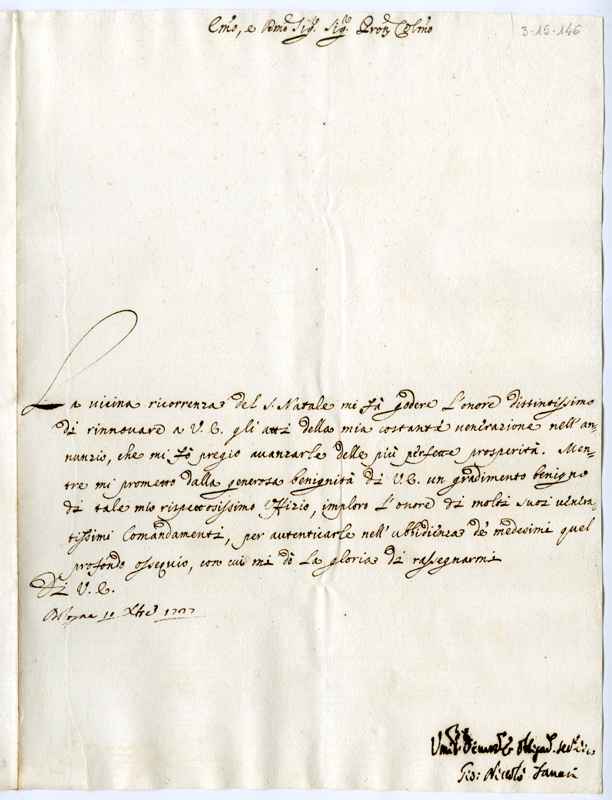 Emo, e Rmo Sig.r Sig.r Pron Colmo
3-15-146
La vicina ricorrenza del S. Natale mi fà godere l'onore distintissimo
di rinnovare a V. E. gli atti della mia costante venerazione nell'an-
nunzio, che mi fò pregio avanzarle delle più perfette prosperità. Men-
tre mi prometto dalla generosa benignità di V. E. un gradimento benigno
di tale mio rispettosissimo Uffizio, imploro l'onore di molti suoi venera-
tissimi Comandamenti, per autenticarle nell'ubbidienza de' medesimi quel
profondo ossequio, con cui mi dò la gloria di rassegnarmi
Di V. E.
Bologna Xbre
Umil.mo Devot.mo Obligat.
Gio: Nicolò